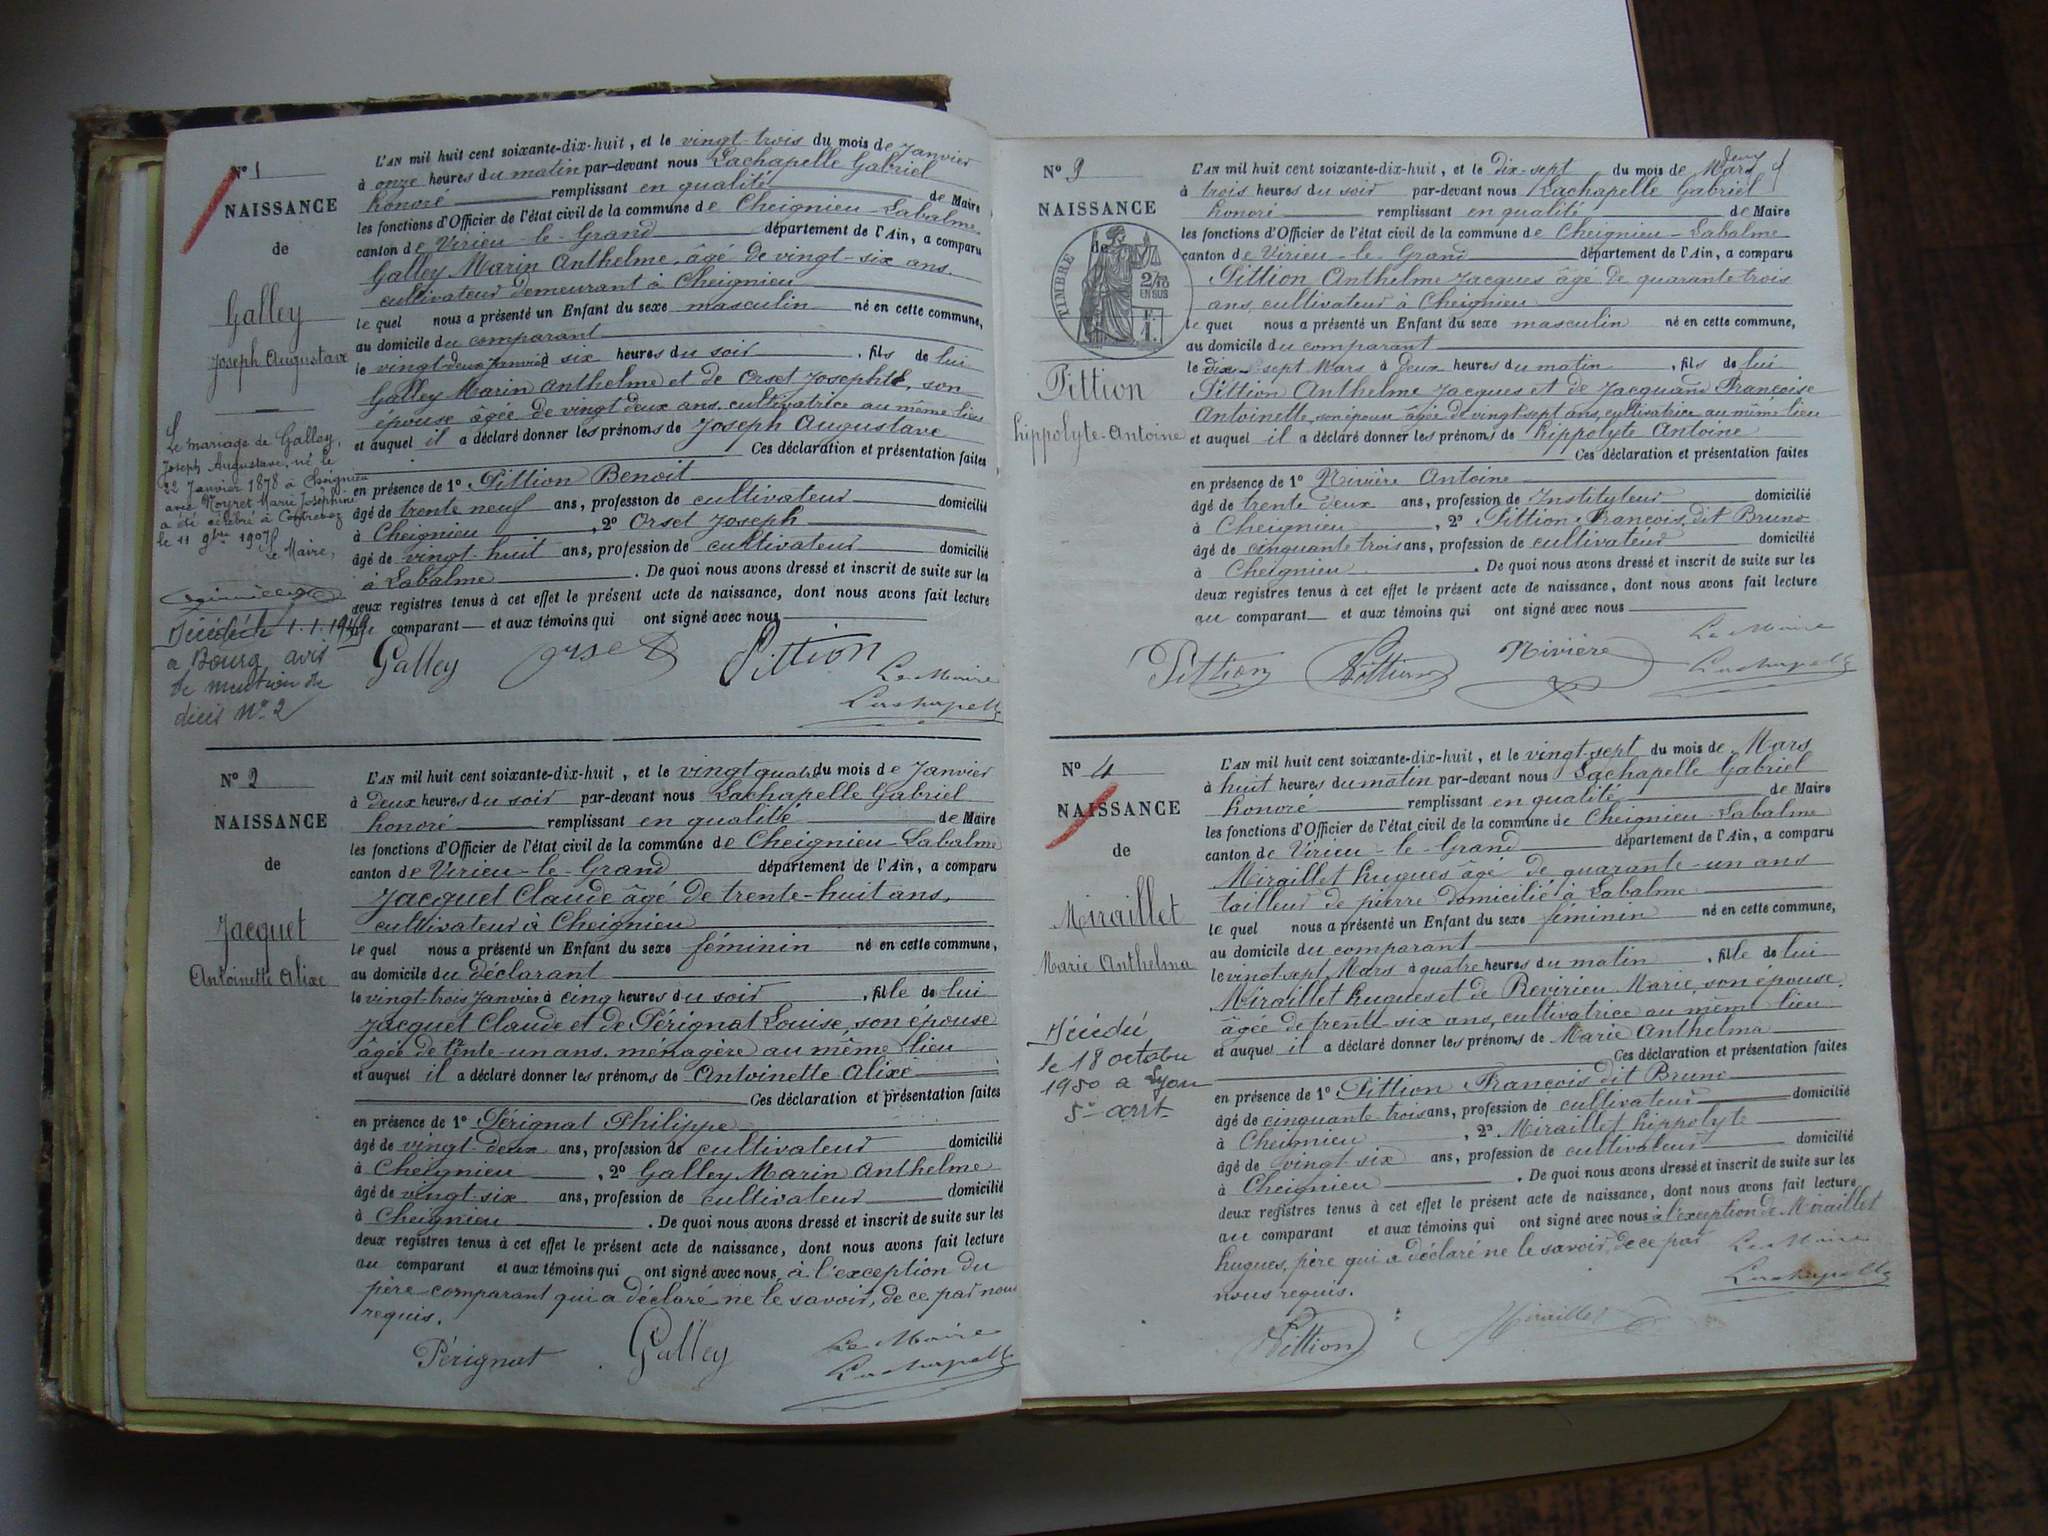 N° 1
NAISSANCE
de
Galley
Joseph Augustave
Le mariage de Galley,
Joseph Augustave, né le
22 Janvier 1878 à Cheignieu
avec Marie Joséphine
a été célébré à Contrevoz
le 11 9bre 1907
Le Maire,
Décédé le 1.1.
a Bourg avis
de mention de
décès N° 2
L'AN mil huit cent soixante-dix-huit, et le vingt-trois du mois de Janvier
à onze heures du matin par-devant nous Lachapelle Gabriel
honoré remplissant en qualité de Maire
les fonctions d'Officier de l'état civil de la commune de Cheignieu-Labalme
canton de Virieu-le-Grand département de l'Ain, a comparu
Galley Marin Anthelme, âgé de vingt-six ans
cultivateur demeurant à Cheignieu
le quel nous a présenté un Enfant du sexe masculin né en cette commune,
au domicile du comparant
le vingt-deux Janvier à six heures du soir, fils de lui
Galley Marin Anthelme et de Orset Josephte, son
épouse âgée de vingt deux ans, cultivatrice au même lieu
et auquel il a déclaré donner les prénoms de Joseph Augustave
Ces déclaration et présentation faites
en présence de 1° Pittion Benoit
âgé de trente neuf ans, profession de cultivateur domicilié
à Cheignieu, 2° Orset Joseph
âgé de vingt-huit ans, profession de cultivateur domicilié
à Labalme. De quoi nous avons dressé et inscrit de suite sur les
deux registres tenus à cet effet le présent acte de naissance, dont nous avons fait lecture
comparant et aux témoins qui ont signé avec nous
Galley Orset Pittion Le Maire
Lachapelle
N° 2
NAISSANCE
de
Jacquet
Antoinette Alixe
L'AN mil huit cent soixante-dix-huit, et le vingt quatre du mois de Janvier
à deux heures du soir par-devant nous Lachapelle Gabriel
honoré remplissant en qualité de Maire
les fonctions d'Officier de l'état civil de la commune de Cheignieu-Labalme
canton de Virieu-le-Grand département de l'Ain, a comparu
Jacquet Claude âgé de trente-huit ans,
cultivateur à Cheignieu
le quel nous a présenté un Enfant du sexe féminin né en cette commune,
au domicile du déclarant
le vingt-trois Janvier à cinq heures du soir, fille de lui
Jacquet Claude et de Pérignat Louise, son épouse
âgée de trente-un ans, ménagère au même lieu
et auquel il a déclaré donner les prénoms de Antoinette Alixe
Ces déclaration et présentation faites
en présence de 1° Pérignat Philippe
âgé de vingt-deux ans, profession de cultivateur domicilié
à Cheignieu, 2° Galley Marin Anthelme
âgé de vingt-six ans, profession de cultivateur domicilié
à Cheignieu. De quoi nous avons dressé et inscrit de suite sur les
deux registres tenus à cet effet le présent acte de naissance, dont nous avons fait lecture
au comparant et aux témoins qui ont signé avec nous, à l'exception du
père comparant qui a déclaré ne le savoir, de ce par nous
requis.
Pérignat Galley Le Maire
Lachapelle
N° 3
NAISSANCE
de
TIMBRE
2/10
EN SUS
Pittion
hippolyte-Antoine
deux
L'AN mil huit cent soixante-dix-huit, et le dix-sept du mois de Mars
à trois heures du soir par-devant nous Lachapelle Gabriel
honoré remplissant en qualité de Maire
les fonctions d'Officier de l'état civil de la commune de Cheignieu-Labalme
canton de Virieu-le-Grand département de l'Ain, a comparu
Pittion Anthelme Jacques âgé de quarante-trois
ans, cultivateur à Cheignieu
le quel nous a présenté un Enfant du sexe masculin né en cette commune,
au domicile du comparant
le dix-sept Mars à deux heures du matin, fils de lui
Pittion Anthelme Jacques et de Jacquand Françoise
Antoinette, son épouse âgée de vingt-sept ans, cultivatrice au même lieu
et auquel il a déclaré donner les prénoms de hippolyte Antoine
Ces déclaration et présentation faites
en présence de 1° Rivière Antoine
âgé de trente deux ans, profession de Instituteur domicilié
à Cheignieu, 2° Pittion François dit Bruno
âgé de cinquante trois ans, profession de cultivateur domicilié
à Cheignieu. De quoi nous avons dressé et inscrit de suite sur les
deux registres tenus à cet effet le présent acte de naissance, dont nous avons fait lecture
au comparant et aux témoins qui ont signé avec nous
Pittion Pittion Rivière Le Maire
Lachapelle
N° 4
NAISSANCE
de
Miraillet
Marie Anthelma
Décédé
le 18 octobre
1950 a Lyon
5e arrt
L'AN mil huit cent soixante-dix-huit, et le vingt-sept du mois de Mars
à huit heures du matin par-devant nous Lachapelle Gabriel
honoré remplissant en qualité de Maire
les fonctions d'Officier de l'état civil de la commune de Cheignieu-Labalme
canton de Virieu-le-Grand département de l'Ain, a comparu
Miraillet hugues âgé de quarante-un ans
tailleur de pierre domicilié à Labalme
le quel nous a présenté un Enfant du sexe féminin né en cette commune,
au domicile du comparant
le vingt-sept Mars à quatre heures du matin, fille de lui
Miraillet hugues et de Revirieu Marie, son épouse,
âgée de trente-six ans, cultivatrice au même lieu
et auquel il a déclaré donner les prénoms de Marie Anthelma
Ces déclaration et présentation faites
en présence de 1° Pittion François dit Bruno
âgé de cinquante-trois ans, profession de cultivateur domicilié
à Cheignieu, 2° Miraillet hippolyte
âgé de vingt-six ans, profession de cultivateur domicilié
à Cheignieu. De quoi nous avons dressé et inscrit de suite sur les
deux registres tenus à cet effet le présent acte de naissance, dont nous avons fait lecture
au comparant et aux témoins qui ont signé avec nous à l'exception de Miraillet
hugues, père qui a déclaré ne le savoir, de ce par
nous requis.
Le Maire
Lachapelle
Pittion Miraillet